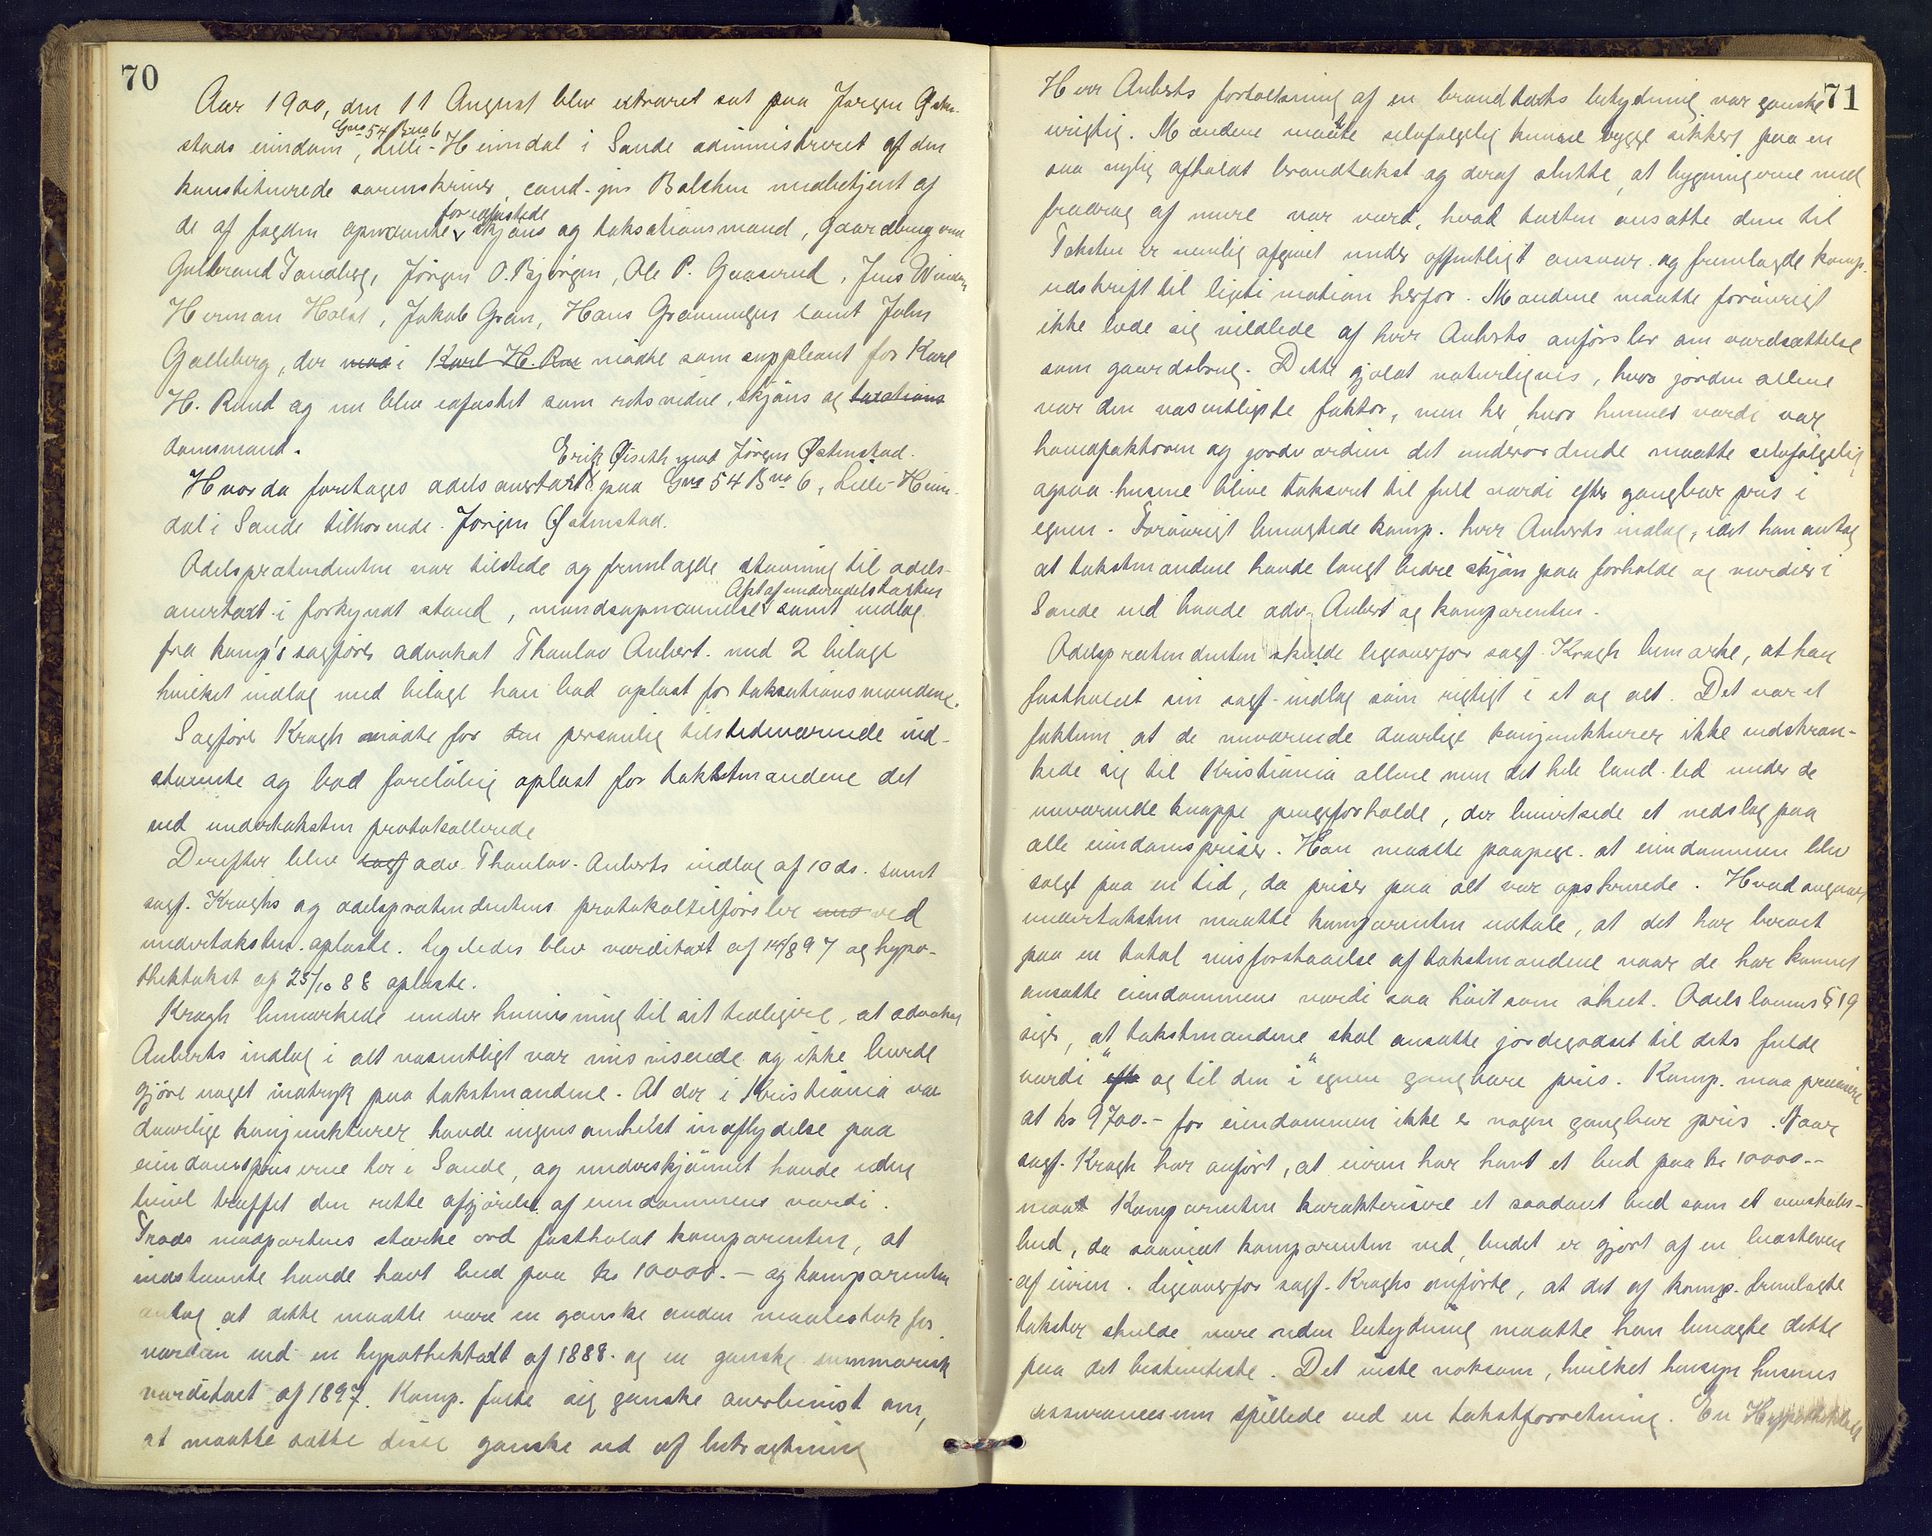 70
Aar 1900, den 11 August blev extraret sat paa Jørgen Østen-
Gno 54 Bno 6
stads eiendom, Lille-Heimdal i Sande administreret af den
konstituerede sorenskriver, cand. jur Balchen medbetjent af
foredfæstede
de af fogden opnævnte skjøns og taksationsmænd, gaardbrugerne
Gulbrand Sandberg, Jørgen O. Bjørgen, Ole P. Gaasrud, Jens
Herman Holst, Jakob Gran, Hans Grønningen samt John
Galleberg, der med i Karl H. Ru mødte som suppleant for Karl
H. Rund og nu blev edfæstet som retsvidne, skjøns og taxations
domsmand.
Erik Øiseth mod Jørgen Østenstad.
Hvorda foretoges odelsovertaxt paa Gno 54 Bno 6, Lille-Heim-
dal i Sande tilhørende Jørgen Østenstad.
Odelsprætendenten var tilstede og fremlagde stevning til odels-
Afst af underodelstaxten
overtaxt i forkyndt stand, mandsopnævnelse samt indlæg
fra komp's sagfører advokat Thaulov Aubert med 2 bilage
hvilket indlæg med bilage han bad oplæst for taksationsmændene.
Sagfører Kragh mødte for den personlig tilstedeværende ind-
stevnte og bad foreløbig oplæst for takstmændene det
ved undertaksten protokollerede
Derefter blev sagf adv. Thaulov-Auberts indlæg af 10 ds. samt
sagf. Kraghs og odelsprætendentens protokoltilførsler und ved
undertaksten oplæste. Ligeledes blev værditaxt af 14/897 og hypo-
thektakst af 25/10 88 oplæste.
Kragh bemærkede under henvisning til sit tidligere, at advokat
Auberts indlæg i alt væsentligt var misvisende og ikke burde
gjøre noget indtryk paa takstmændene. At der i Kristiania var
daarlige konjunkturer havde ingensomhelst indflydelse paa
eiendomspriserne her i Sande, og underskjønnet havde uden
tvivl truffet den rette afgjørelse af eiendommens værdi.
Trods modpartens stærke ord fastholdt komparenten, at
indstevnte havde havt bud paa kr 10000.- og komparenten
antog at dette maatte være en ganske anden maalestok for
værdien end en hypothektaxt af 1888 og en ganske summarisk
værditaxt af 1897. Komp. følte sig ganske overbevist om,
at maatte sætte disse ganske ud af betragtning
71
Herr Auberts fortolkning af en brandtaksts betydning var ganske
urigtig. Mændene maatte selvfølgelig kunne bygge sikkert paa en
saa nylig afholdt brandtakst og deraf slutte, at bygningerne med
fradrag af mure var værd, hvad taxten ansatte dem til
Taksten er nemlig afgivet under offentligt ansvar og fremlagde komp.
udskrift til legitimation herfor. Mændene maatte forøvrigt
ikke lade sig vildlede af herr Auberts anførsler om værdsættelse
som gaardsbrug. Dette gjaldt naturligvis, hvor jorden allene
var den væsentligste faktor, men her, hvor husenes værdi var
hovedfaktoren og jordværdien det underordnede maatte selvfølgelig
ogsaa husene blive taksert til fuld værdi efter gangbar pris i
egnen. Forøvrigt benegtede komp. herr Auberts indlæg, idet han antog
at takstmændene havde langt bedre skjøn paa forholde og værdier i
Sande end baade adv. Aubert og komparenten.
Odelsprætendenten skulde ligeoverfor sagf. Kragh bemærke, at han
fastholdt sin sagf. indlæg som rigtigt i et og alt. Det var et
faktum at de nuværende daarlige konjunkturer ikke indskræn-
kede sig til Kristiania allene men det hele land led under de
nuværende knappe pengeforholde, der bevirkede et nedslag paa
alle eiendomspriser. Han maatte paapege at eiendommen blev
solgt paa en tid, da priser paa alt var opskruede. Hvad angaar
undertaksten maatte komparenten udtale, at det har beroet
paa en total misforstaaelse af takstmændene naar de har kunnet
ansætte eiendommens værdi saa høit som skeet. Odelslovens § 19
siger, at takstmændene skal ansætte jordegodset til dets fulde
værdi "efte og til den i" egnen gangbare pris. Komp. maa præcisere
at kr 9700.- for eiendommen ikke er nogen gangbar pris. Naar
sagf. Kragh har anført, at eieren har havt et bud paa kr 10000.-
maat Komparenten karakterisere et saadant bud som et venskabs-
bud, da saavidt komparenten ved, budet er gjort af en
af eieren. Ligeoverfor sagf. Kraghs anførte, at det af komp. fremlagte
takster skulde være uden betydning maatte han benegte dette
paa det bestemteste. Det viste noksom, hvilket hensyn husenes
assurancesum spillede ved en takstforretning. En